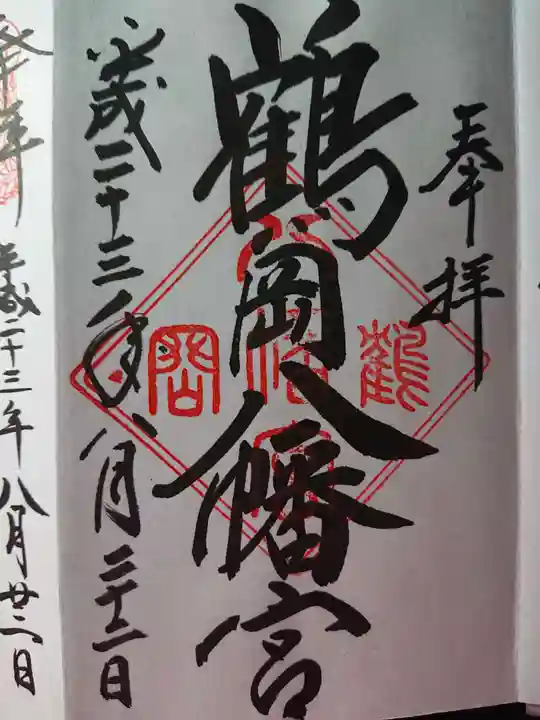 奉拝
鶴岡八幡宮
鶴
岡
平成二十三年八月二十二日
奉拝
平成二十三年八月廿二日